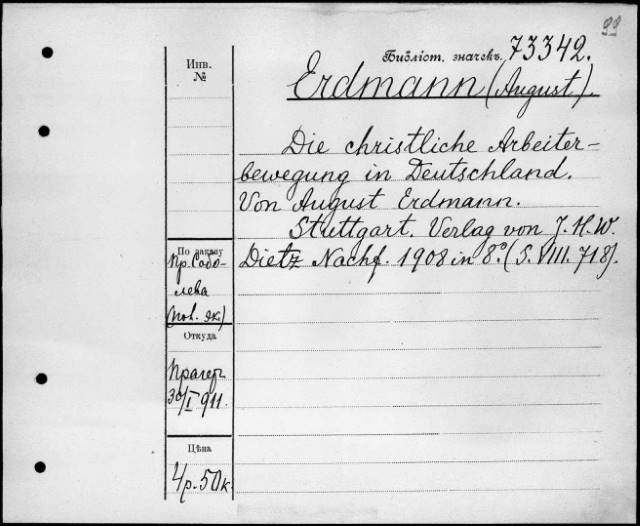 99
Библіот. значекъ 73342.
Инв.
№
Erdmann (August).
Die christliche Arbeiter-
bewegung in Deutschland.
Von August Erdmann.
Stuttgart. Verlag von J. H. W.
Dietz Nachf. 1908 in 8º. (S. VIII. 718).
По заказу
Пр. Собо-
лева
(нов. эк.)
Откуда
Прагеръ
30/I 911.
Цѣна
4 р. 50 к.